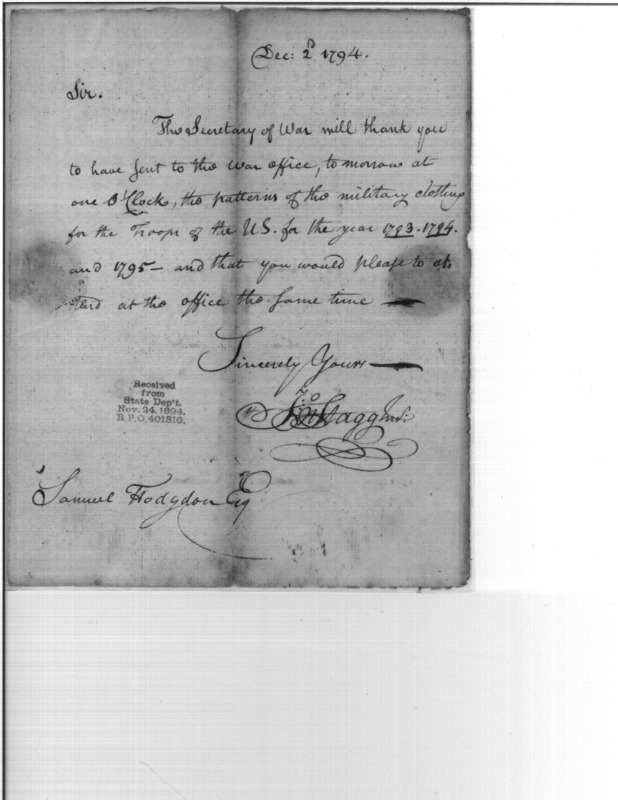 Dec: 2d 1794.
Sir.
The Secretary of War will thank you
to have sent to the War office, to morrow at
one O'Clock, the patterns of the military clothing
for the Troops of the US. for the year 1793-1794.
and 1795 - and that you would please to at-
tend at the office the same time
Sincerely Yours
Jno Stagg Jnr:
Received
from
State Dep't.
Nov. 24. 1894.
R.P.O. 401310.
Samuel Hodgdon Esq